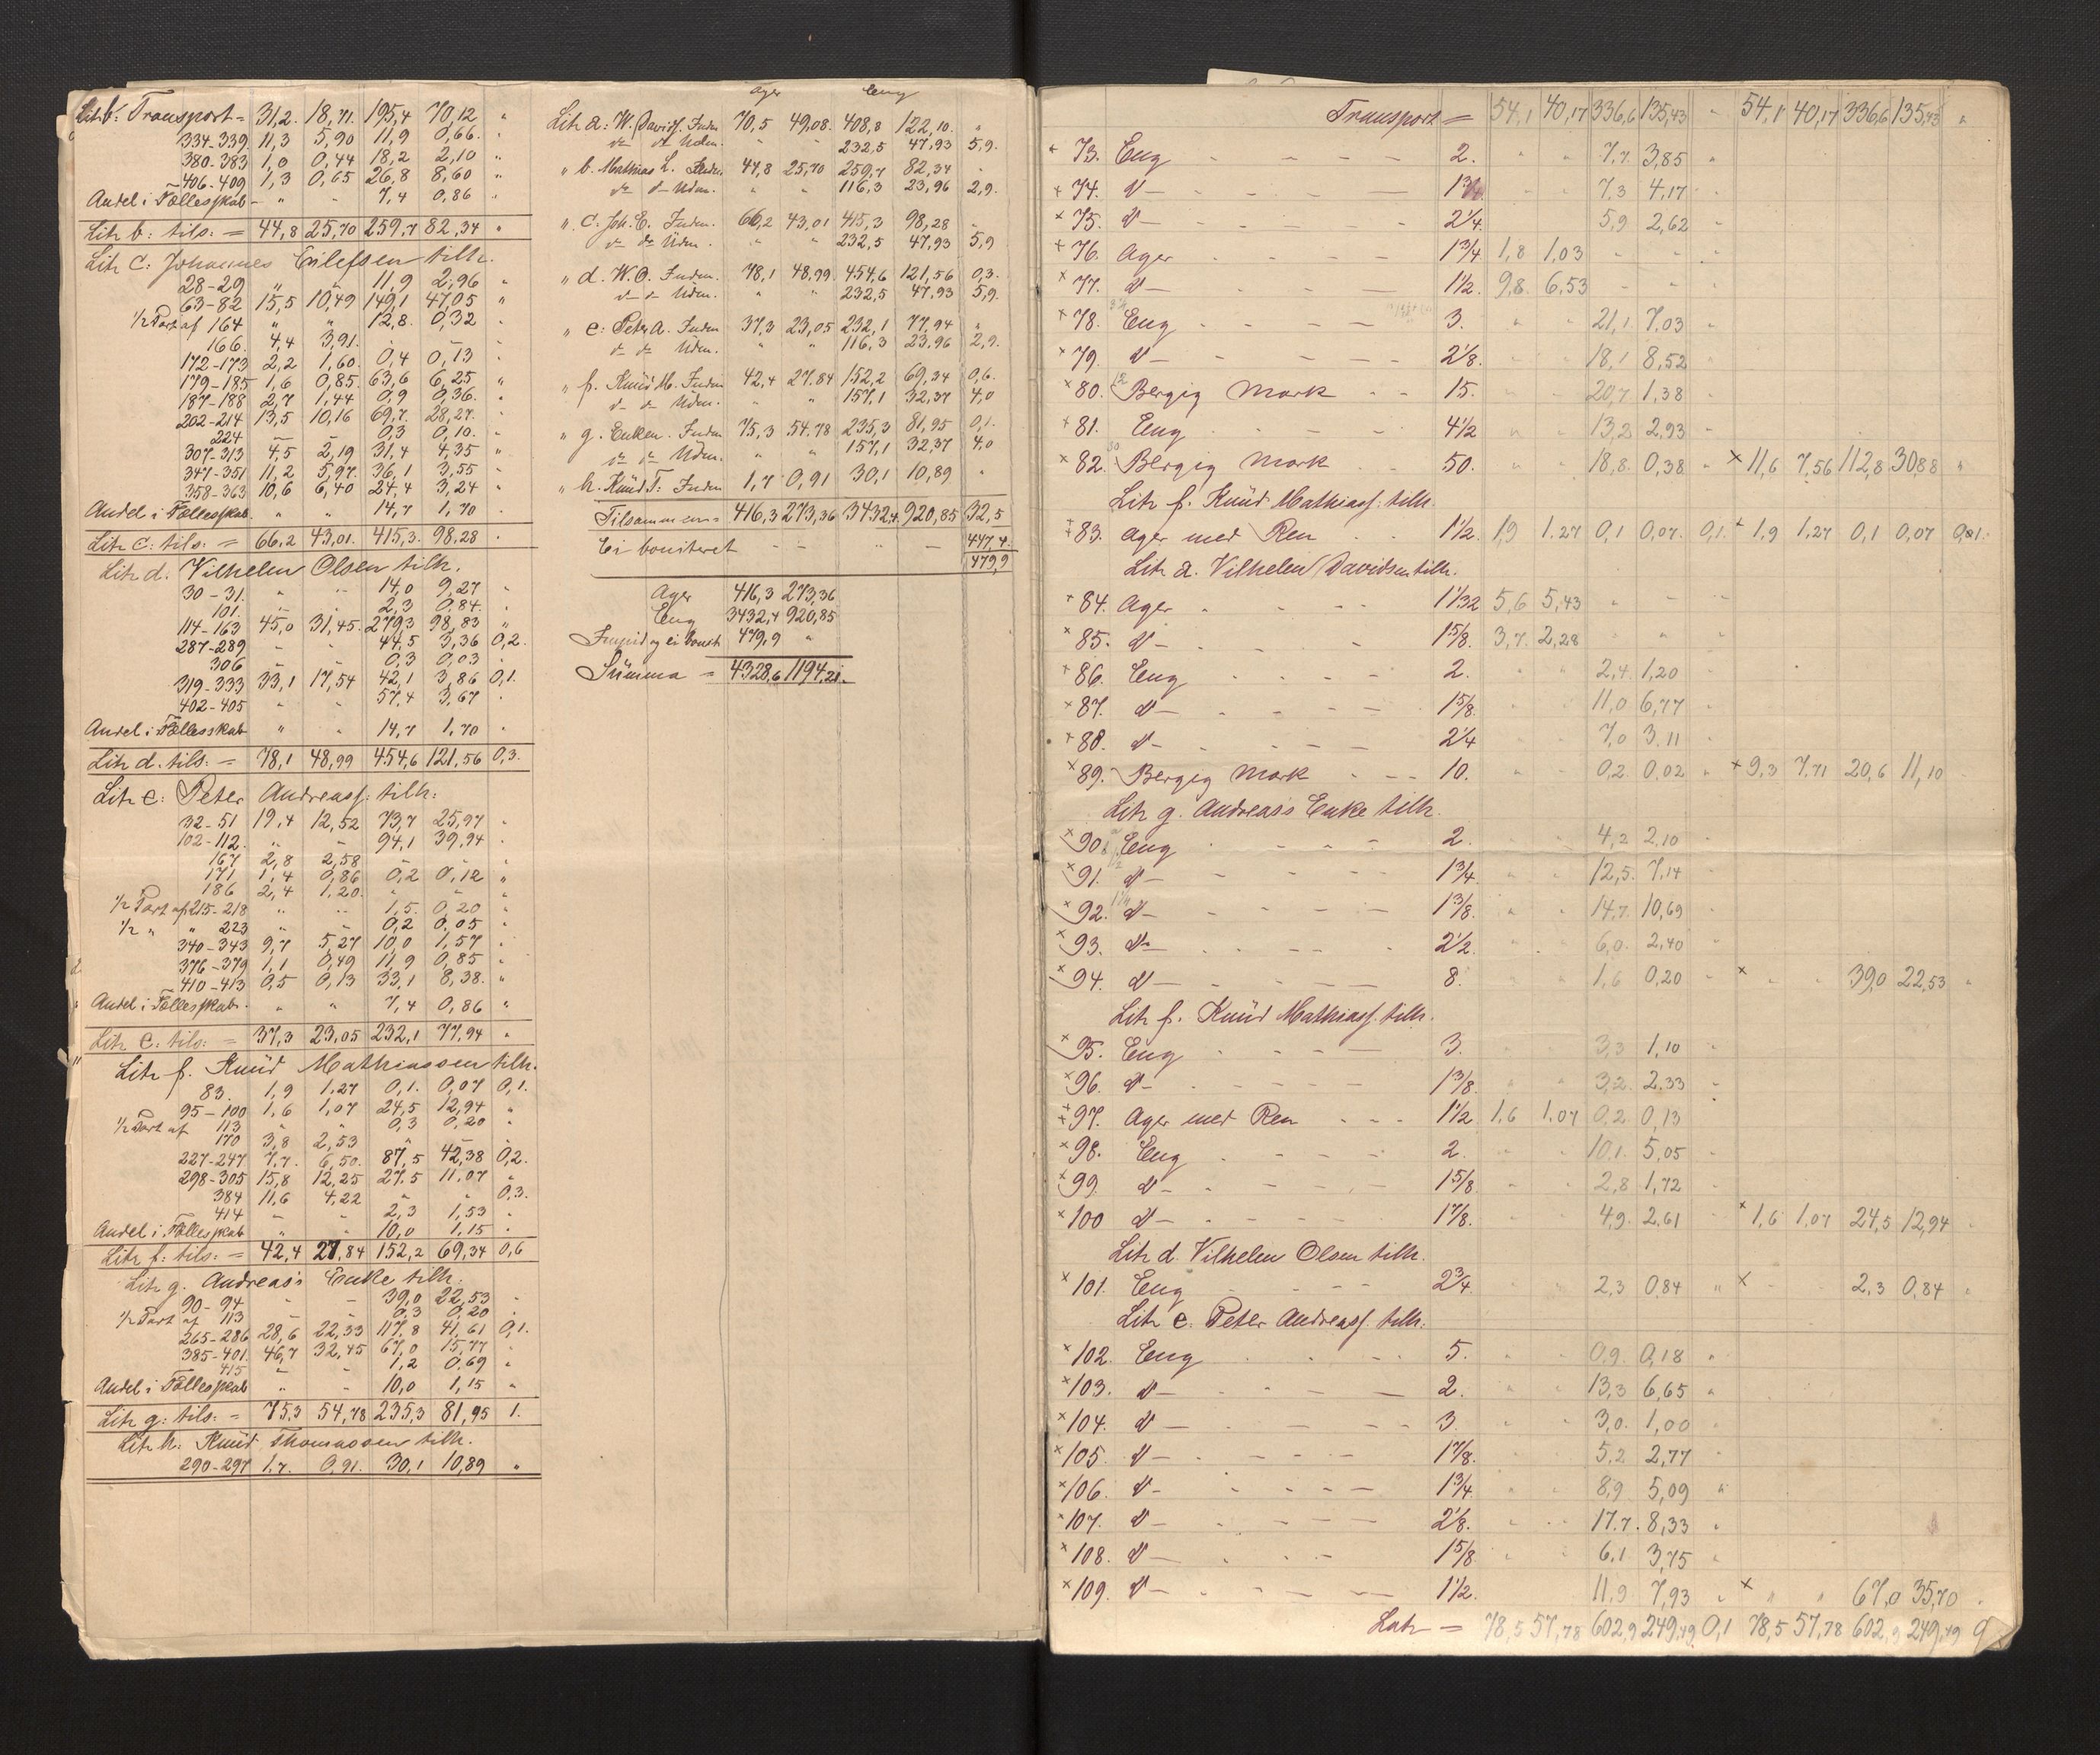 Litr b: Transport = 31,2. 18,71. 195,4 70,12 "
334-339 11,3 5,90 11,9 0,66.
380-383 1,0 0,44 18,2 2,10 "
406-409 1,3 0,65 26,8 8,60 "
Andel i Fællesskab - " - 7,4 0,86
Litr b: tils: = 44,8 25,70 259,7 82,34 "
Litr C: Johannes Eilefsen tilh.
28-29 " " 11,9 2,96 "
63-82 15,5 10,49 149,1 47,05 "
1/2 Part af 164 " " 12,8. 0,32
166. 4,4 3,91. - -
172-173 2,2 1,60. 0,4 0,13 "
179-185 1,6 0,85. 63,6 6,25 "
187-188 2,7 1,44 0,9 0,36. "
202-214 13,5 10,16 69,7. 28,27. "
224 - - 0,3 0,10.
307-313 4,5 2,19 31,4 4,35 "
347-351 11,2 5,97. 36,1 3,55 "
358-363 10,6 6,40 24,4 3,24 "
Andel i Fællesskab. " " 14,7 1,70
Litr C: tils: = 66,2 43,01. 415,3. 98,28
Litr d. Vilhelm Olsen tilh.
30-31. " " 14,0 9,27 "
101. - - 2,3 0,84.
114-163 45,0 31,45. 279,3 98,83 "
287-289 - - 44,5 3,36 0,2.
306 - - 0,3 0,03
319-333 33,1 17,54 42,1 3,86 0,1.
402-405 " " 57,4 3,67
Andel i Fællesskab " " 14,7 1,70
Litr d. tils: = 78,1 48,99 454,6 121,56 0,3.
Litr e: Peter Andreass: tilh:
32-51 19,4 12,52 73,7 25,97
102-112. " - 94,1 39,94
167 2,8 2,58 - -
171 1,4 0,86 0,2 0,12 "
186 2,4 1,20. " - "
1/2 Part af 215-218 " " 1,5. 0,20
1/2 " " 223 " - 0,2 0,05
340-343 9,7 5,27 10,0 1,57
376-379 1,1 0,49 11,9 0,85
410-413 0,5 0,13 33,1 8,38. "
Andel i Fællesskab. " " 7,4 0,86 "
Litr e: tils: = 37,3 23,05 232,1 77,94 "
Litr f. Knüd Mathiassen tilh.
83. 1,9 1,27 0,1. 0,07 0,1.
95-100 1,6 1,07 24,5 12,94 "
1/2 Part af 113 " " 0,3 0,20
170 3,8 2,53 " -
227-247 7,7. 6,50. 87,5 42,38 0,2.
298-305 15,8 12,25 27,5 11,07 "
384 11,6 4,22 " " 0,3.
414 - - 2,3 1,53
Andel i Fællesskab " " 10,0 1,15
Litr f: tils: = 42,4 27,84 152,2 69,34 0,6
Litr g. Andreas's Enke tilh.
90-94 " - 39,0 22,53
1/2 Part af 113 - - 0,3 0,20
265-286 28,6 22,33 117,8 41,61 0,1.
385-401. 46,7 32,45 67,0 15,77
415 - - 1,2 0,69
Andel i Fællesskab " - 10,0 1,15 "
Litr g: tils: = 75,3 54,78 235,3 81,95 1.
Litr h: Knüd Thomassen tilh.
290-297 1,7. 0,91. 30,1 10,89 "
Ager Eng
Litr a: W. Davids. Inden 70,5 49,08. 408,8 122,10. "
do do Uden. " " 232,5 47,93 5,9.
" b. Mathias L. Inden 44,8 25,70 259,7 82,34
do do Uden. " " 116,3 23,96 2,9.
" C: Joh. E. Inden. 66,2 43,01 415,3 98,28 "
do do Uden. " " 232,5 47,93 5,9
" d. W. O. Inden. 78,1 48,99. 454,6 121,56 0,3.
do do Uden. " " 232,5 47,93 5,9.
" e: Peter A. Inden 37,3 23,05 232,1 77,94 "
do do Uden. " " 116,3 23,96 2,9.
" f. Knüd M. Inden 42,4 27,84 152,2 69,34 0,6.
do do Uden. " " 157,1 32,37 4,0
" g. Enken. Inden 75,3 54,78 235,3 81,95 0,1.
do do Uden. " " 157,1 32,37 4,0
" h. Knüd T: Inden 1,7 0,91 30,1 10,89 "
Tilsammen = 416,3 273,36 3432,4 920,85 32,5
Ei boniteret - - " - 447,4.
479,9
Ager 416,3 273,36
Eng 3432,4 920,85
Impid og ei bonit 479,9 "
Sümma = 4328,6 1194,21.
Transport = 54,1 40,17 336,6 135,43 " 54,1 40,17 336,6 135,43 "
× 73. Eng - - - - 2. " " 7,7. 3,85 "
× 74. d- - - - 1 3/4. - - 7,3 4,17
× 75. d- - - - 2 1/4. 5,9 2,62
× 76. Ager - - - 1 3/4 1,8 1,03 - -
× 77. d- - - - 1 1/2. 9,8. 6,53 - -
× 78. Eng - - - - 3. " " 21,1 7,03 "
× 79. d- - - - 2 1/8. - - 18,1 8,52
× 80. Bergig Mark - - 15. - - 20,7 1,38
× 81. Eng - - - - 4 1/2 " " 13,2 2,93 -
× 82. Bergig Mark - - 50. " " 18,8. 0,38 " × 11,6 7,56 112,8 30,88 "
Litr f. Knüd Mathiass: tilh.
× 83. Ager med Ren - - 1 1/2. 1,9 1,27 0,1 0,07. 0,1. × 1,9 1,27 0,1 0,07 0,1.
Litr a. Vilhelm Davidsen tilh.
× 84. Ager - - - 1 1/32 5,6 5,43 " - -
× 85. d- - - - 1 5/8. 3,7. 2,28 " "
× 86. Eng - - - - 2. " " 2,4. 1,20
× 87. d- - - - 1 5/8. 11,0 6,77 -
× 88. d- - - - 2 1/4 - - 7,0 3,11 "
× 89. Bergig Mark - - - 10. - - 0,2. 0,02 " × 9,3 7,71 20,6 11,10
Litr g. Andreas's Enke tilh.
× 90. Eng - - - 2. - - 4,2 2,10 -
× 91. d- - - - 1 3/4. " " 12,5. 7,14
× 92. d- - - - 1 3/8. " " 14,7. 10,69
× 93. d- - - - 2 1/2. - - 6,0. 2,40
× 94. d- - - - 8. " " 1,6 0,20 " × - - 39,0 22,53 "
Litr f. Knüd Mathiass. tilh.
× 95. Eng - - - - 3. - - 3,3 1,10 "
× 96. d- - - - 1 3/8. " " 3,2. 2,33 -
× 97. Ager med Ren - - - 1 1/2 1,6 1,07 0,2 0,13
× 98. Eng - - - 2. - - 10,1. 5,05 -
× 99. d- - - - 1 5/8 - - 2,8 1,72 -
× 100 d- - - - 1 7/8. - - 4,9. 2,61 × 1,6 1,07 24,5 12,94 -
Litr d. Vilhelm Olsen tilh.
× 101. Eng - - - 2 3/4. " " 2,3 0,84 " × - - 2,3 0,84
Litr e. Peter Andreass. tilh.
× 102. Eng - - - 5. " " 0,9. 0,18 "
× 103. d- - - - 2. " " 13,3 6,65 "
× 104. d- - - - 3. - - 3,0. 1,00
× 105. d- - - - 1 7/8. - - 5,2 2,77 -
× 106. d- - - - 1 3/4. - - 8,9 5,09 "
× 107. d- - - - 2 1/8. - - 17,7. 8,33 "
× 108. d- - - - 1 5/8 " " 6,1 3,75 "
× 109. d- - - - 1 1/2. 11,9. 7,93 " × " " 67,0 35,70
Latr = 78,5 57,78 602,9 249,49 0,1 78,5 57,78 602,9 249,49 0